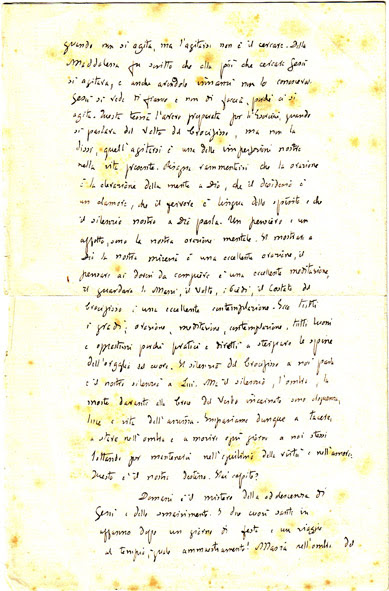 quando non si agita, ma l'agitarsi non è il cercare. Della
Maddalena fu scritto che alla più che cercare Gesù
si agitava, e anche avendolo innanzi non lo conosceva.
Gesù si vede di e non di poichè ci si
agita. Questo l'avevo preparato per quando
si parlava del Volto da Crocifisso, ma non la
dissi; quell'agitarsi è una delle imperfezioni nostre
nella vita presente. Bisogna rammentarsi che la orazione
è la elevazione della mente a Dio, che il desiderio è
un clamore, che il fervore è lingua dello spirito e che
il silenzio nostro a Dio parla. Un pensiero e un
affetto, sono la nostra orazione mentale. Il mostrare a
Dio la nostra miseria è una eccellente orazione, il
pensare ai doveri da compiere è una eccellente meditazione,
il guardare le Mani, il Volto, i Piedi, il Costato del
Crocifisso è una eccellente contemplazione. Ecco tutti
i gradi; orazione, meditazione, contemplazione, tutti buoni
e perchè pratici e diretti a sterpare le spine
dell'orgoglio dal cuore. Il silenzio del Crocifisso a noi parla
e il nostro silenzio a Lui. Ma il silenzio, l'ombra, la
morte davanti alla Croce del Verbo incarnato sono
luce e vita dell'anima. Impariamo dunque a tacere,
a stare nell'ombra e a morire ogni giorno a noi stessi
lottando per mantenerci nell'equilibrio della virtù e nell'amore.
Questo è il nostro destino. Hai capito?
Domani è il mistero della obbedienza di
Gesù e dello smarrimento. I due cuori santi in
affanno dopo un giorno di festa e un viaggio
al tempio; quale ammaestramento! Maria nell'ombra del